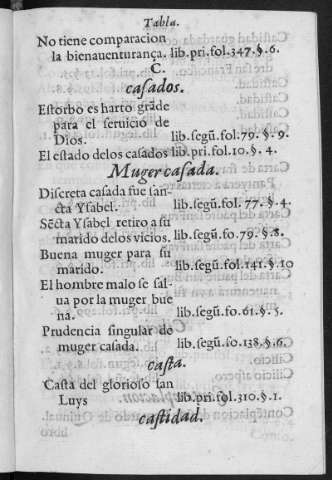 Tabla.
No tiene comparacion
la bienauenturança. lib.pri.fol.347.§.6.
C.
casados.
Estorbo es harto grãde
para el seruicio de
Dios. lib.segũ.fol.79.§.9.
El estado delos casados lib.pri.fol.10.§.4.
Muger casada.
Discreta casada fue san-
cta Ysabel. lib.segũ.fol.77.§.4.
Sẽcta Ysabel retiro a su
marido delos vicios. lib.segũ.fo.79.§.8.
Buena muger para su
marido. lib.segũ.fol.141.§.10
El hombre malo se sal-
ua por la muger bue
na. lib.segũ.fo.61.§.5.
Prudencia singular de
muger casada. lib.segũ.fo.138.§.6.
casta.
Casta del glorioso san
Luys lib.pri.fol.310.§.1.
castidad.